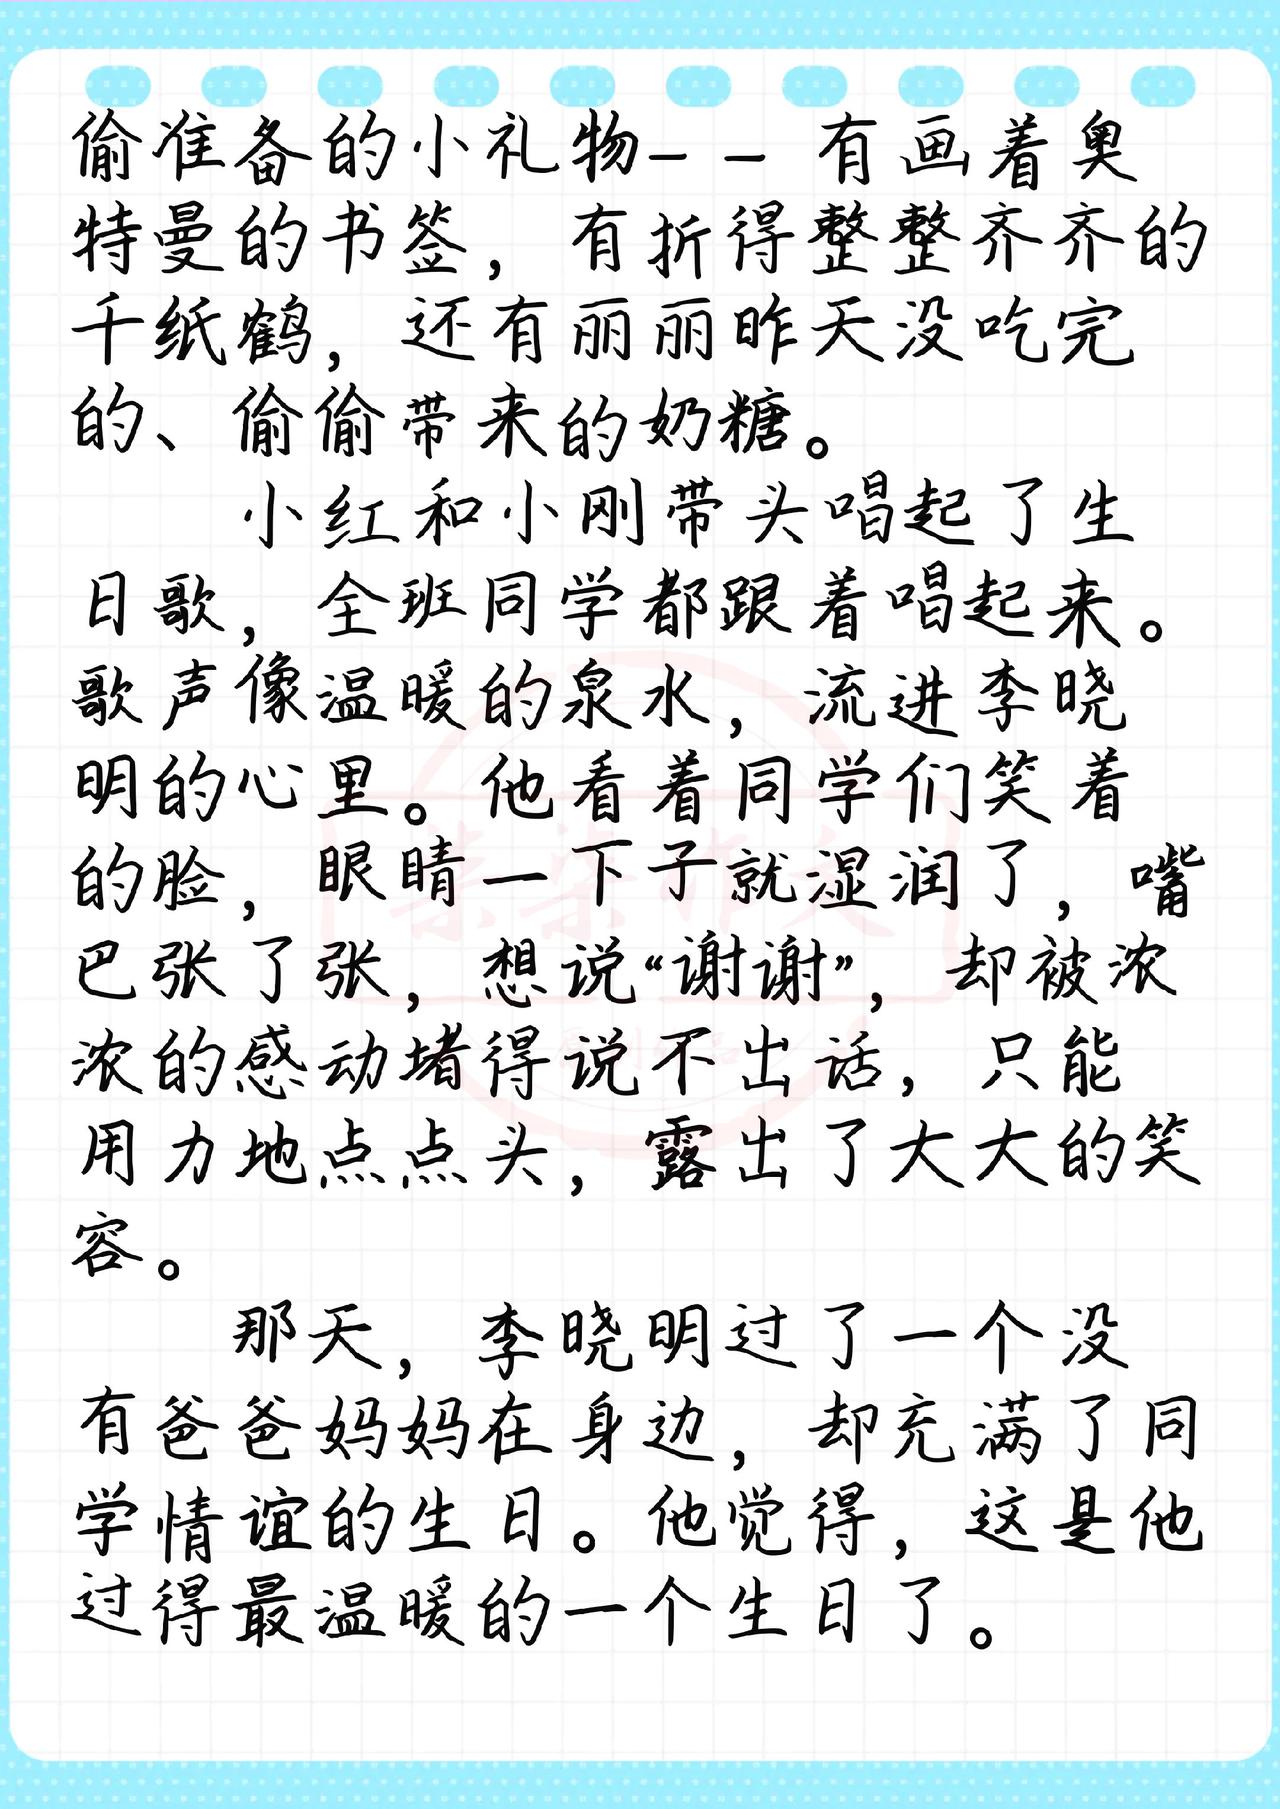 偷准备的小礼物--有画着奥
特曼的书签，有折得整整齐齐的
千纸鹤，还有丽丽昨天没吃完
的、偷偷带来的奶糖。
小红和小刚带头唱起了生
日歌，全班同学都跟着唱起来。
歌声像温暖的泉水，流进李晓
明的心里。他看着同学们笑着
的脸，眼睛一下子就湿润了，嘴
巴张了张，想说“谢谢”，却被浓
浓的感动堵得说不出话，只能
用力地点点头，露出了大大的笑
容。
那天，李晓明过了一个没
有爸爸妈妈在身边，却充满了同
学情谊的生日。他觉得，这是他
过得最温暖的一个生日了。